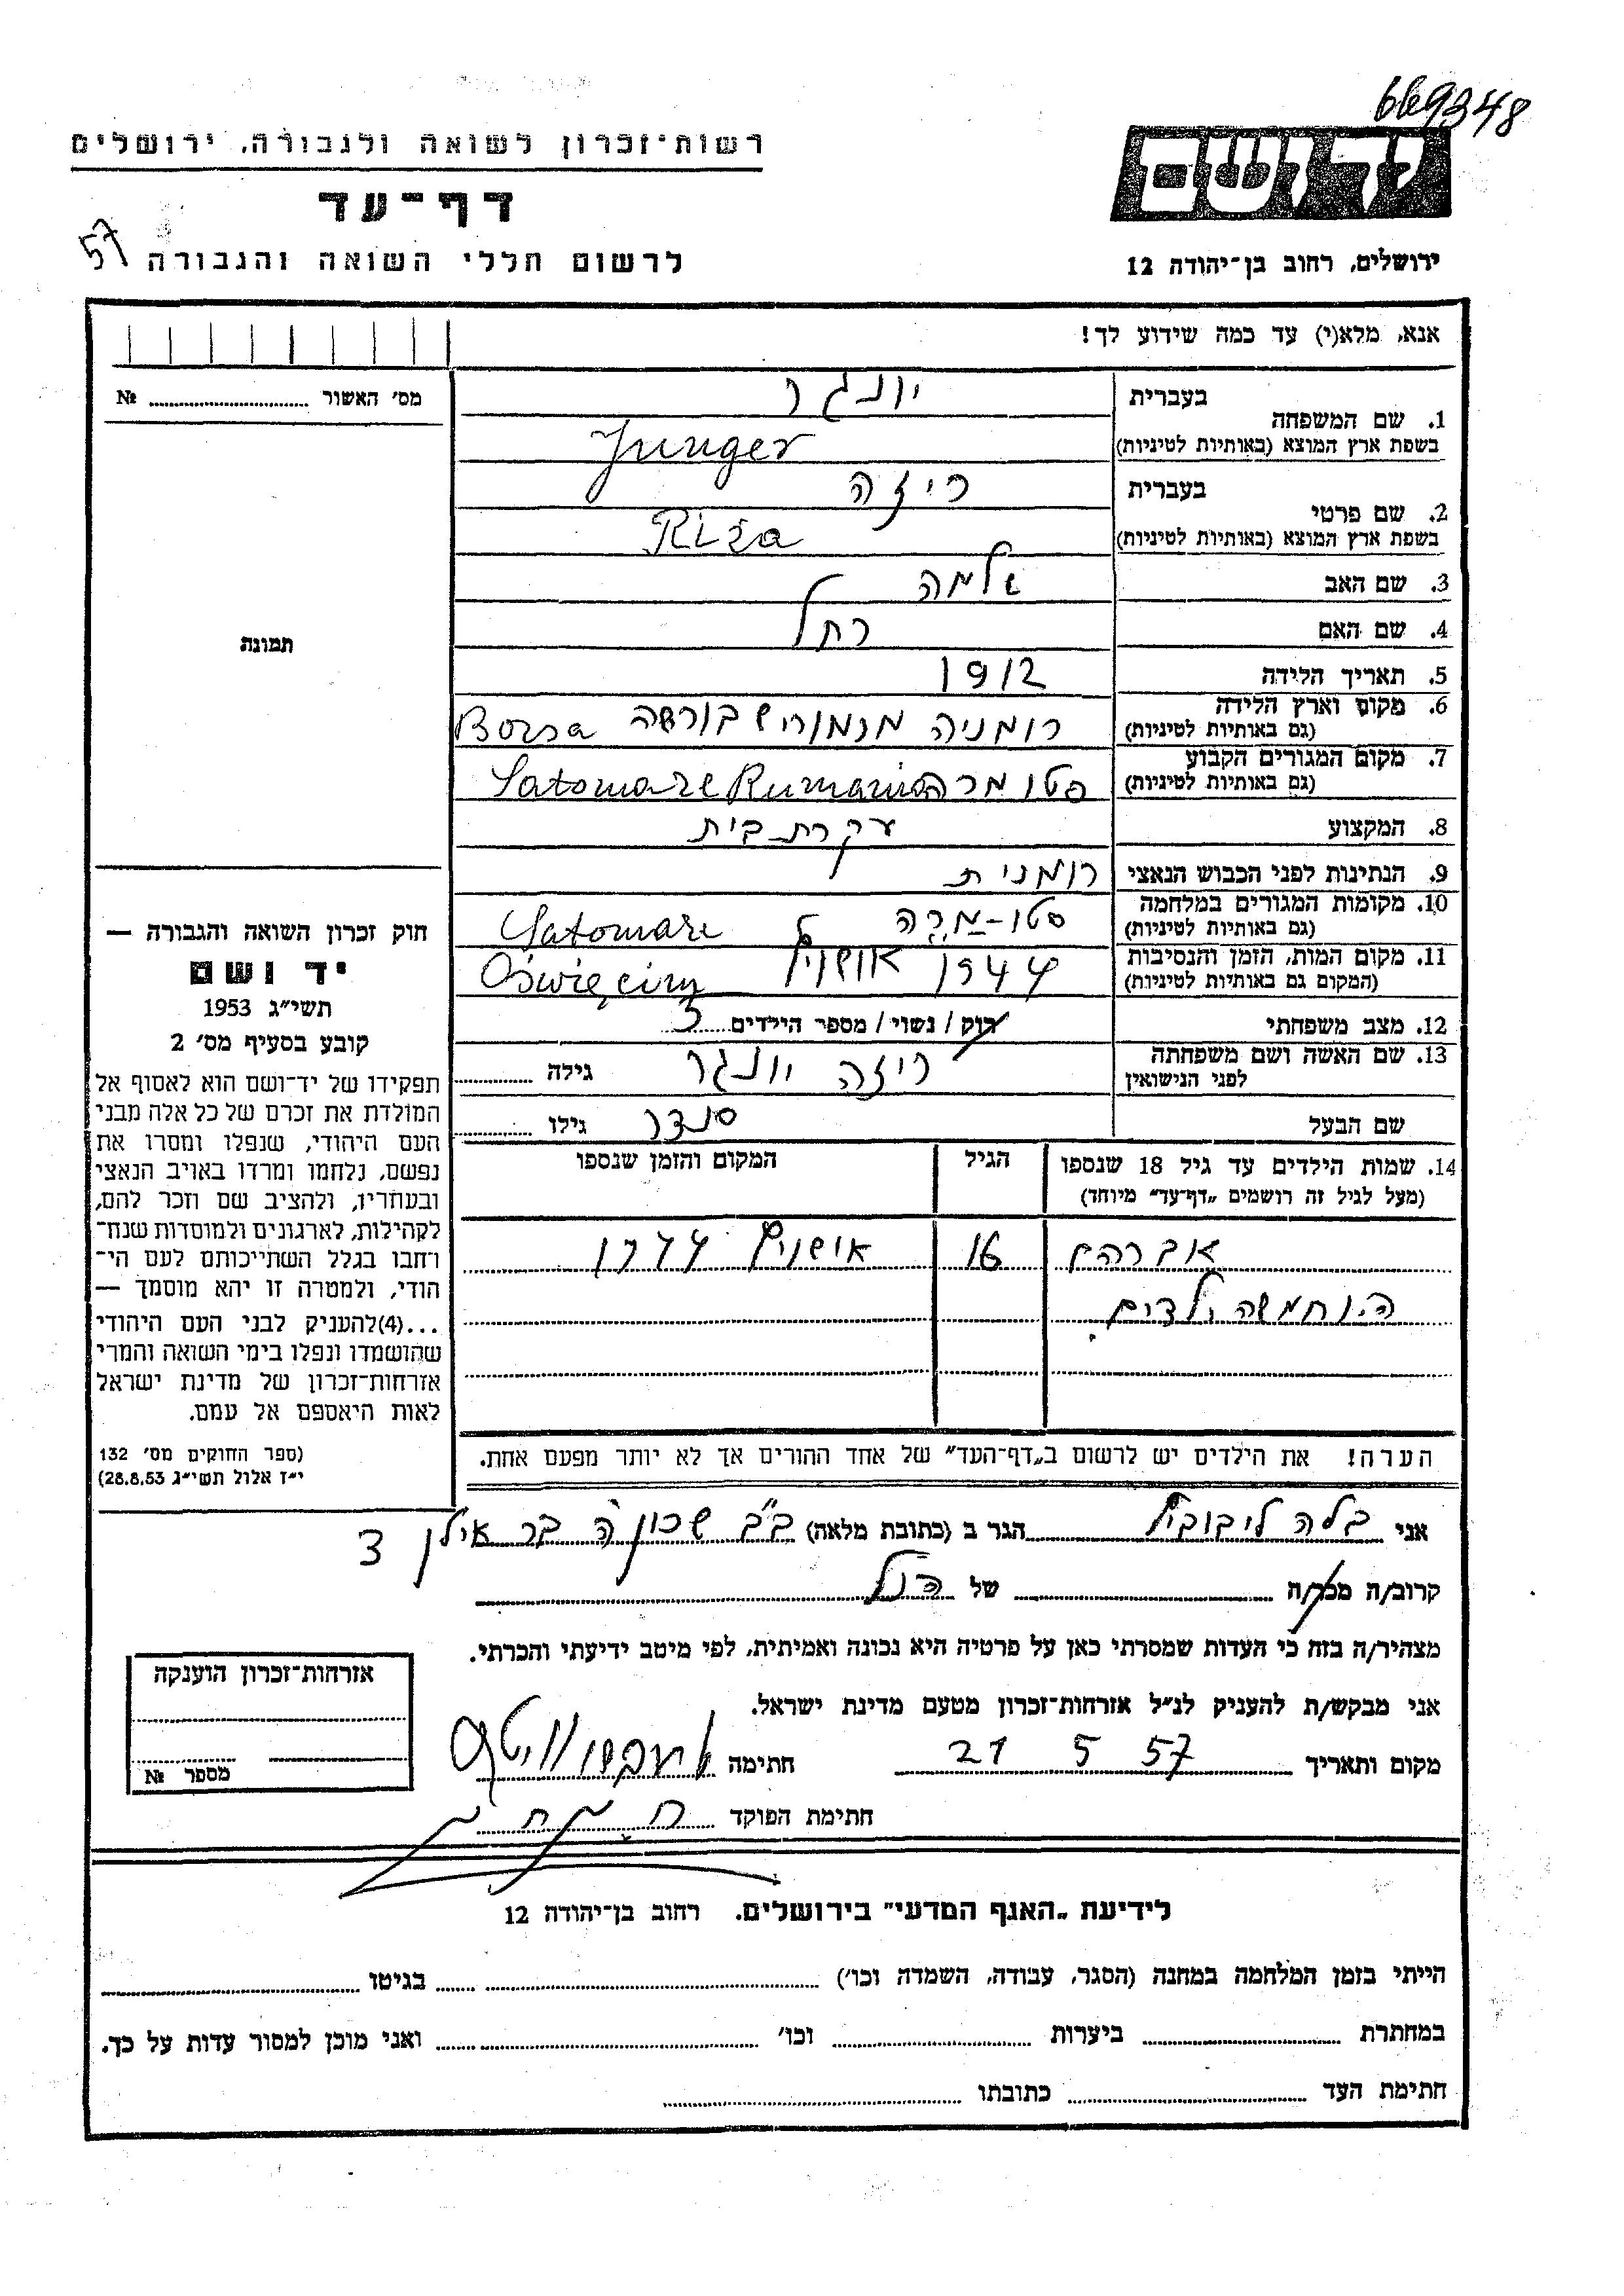 669348
יד ושם
רשות-זכרון לשואה ולגבורה, ירושלים
דף-עד
57
לרשום חללי השואה והגבורה
ירושלים, רחוב בן-יהודה 12
אנא, מלא(י) עד כמה שידוע לך!
מס׳ האשור № 
1. שם המשפחה
בעברית יונגר
בשפת ארץ המוצא (באותיות לטיניות) Junger
2. שם פרטי
בעברית ריזה
בשפת ארץ המוצא (באותיות לטיניות) Riza
3. שם האב שלמה
4. שם האם רחל
5. תאריך הלידה 1912
6. מקום וארץ הלידה
(גם באותיות לטיניות) רומניה בורשה Borsa
7. מקום המגורים הקבוע
(גם באותיות לטיניות) סטו מרה Satomare Rumania
8. המקצוע עקרת בית
9. הנתינות לפני הכבוש הנאצי רומנית
10. מקומות המגורים במלחמה
(גם באותיות לטיניות) סטו-מרה Satomare
11. מקום המות, הזמן והנסיבות
(המקום גם באותיות לטיניות) 1944 Oświęcim
12. מצב משפחתי רוק / נשוי / מספר הילדים 5
13. שם האשה ושם משפחתה
לפני הנישואין ריזה יונגר גילה
שם הבעל סנדר גילו
תמונה
חוק זכרון השואה והגבורה —
יד ושם
תשי״ג 1953
קובע בסעיף מס׳ 2
תפקידו של יד-ושם הוא לאסוף אל
המולדת את זכרם של כל אלה מבני
העם היהודי, שנפלו ומסרו את
נפשם, נלחמו ומרדו באויב הנאצי
ובעוזריו, ולהציב שם וזכר להם,
לקהילות, לארגונים ולמוסדות שנח־
רבו בגלל השתייכותם לעם הי־
הודי, ולמטרה זו יהא מוסמך —
...(4) להעניק לבני העם היהודי
שהושמדו ונפלו בימי השואה והמרי
אזרחות-זכרון של מדינת ישראל
לאות היאספם אל עמם.
(ספר החוקים מס׳ 132
י״ז אלול תשי״ג 28.8.53)
14. שמות הילדים עד גיל 18 שנספו
(מעל לגיל זה רושמים „דף-עד״ מיוחד)
הגיל
המקום והזמן שנספו
אברהם 16 1944
היו חמשה ילדים.
הערה! את הילדים יש לרשום ב„דף-העד״ של אחד ההורים אך לא יותר מפעם אחת.
אני בלה ליבוביץ הגר ב (כתובת מלאה) ב״ב שכונה בר אילן 3
קרוב/ה מכר/ה של הנ״ל
מצהיר/ה בזה כי העדות שמסרתי כאן על פרטיה היא נכונה ואמיתית, לפי מיטב ידיעתי והכרתי.
אני מבקש/ת להעניק לנ״ל אזרחות-זכרון מטעם מדינת ישראל.
מקום ותאריך 21 5 57 חתימה
חתימת הפוקד
אזרחות-זכרון הוענקה
מספר №
לידיעת „האגף המדעי״ בירושלים. רחוב בן-יהודה 12
הייתי בזמן המלחמה במחנה (הסגר, עבודה, השמדה וכו׳) בגיטו
במחתרת ביערות וכו׳ ואני מוכן למסור עדות על כך.
חתימת העד כתובתו